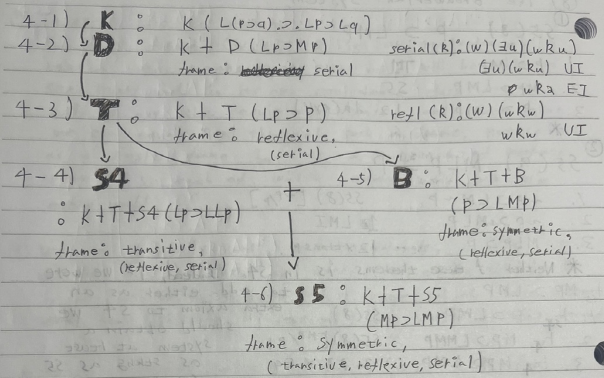 4-1) K : K (L(p⊃q).⊃.Lp⊃Lq)
4-2) D : K + D (Lp⊃Mp) serial(R):(w)(∃u)(wRu)
frame: serial (∃u)(wRu) UI
wRa EI
4-3) T : K + T (Lp⊃p) refl(R):(w)(wRw)
frame: reflexive, wRw UI
(serial)
4-4) S4 + 4-5) B : K+T+B
: K+T+S4 (Lp⊃LLp) (p⊃LMp)
frame: transitive, frame: symmetric,
(reflexive, serial) (reflexive, serial)
4-6) S5 : K+T+S5
(Mp⊃LMp)
frame: symmetric,
(transitive, reflexive, serial)